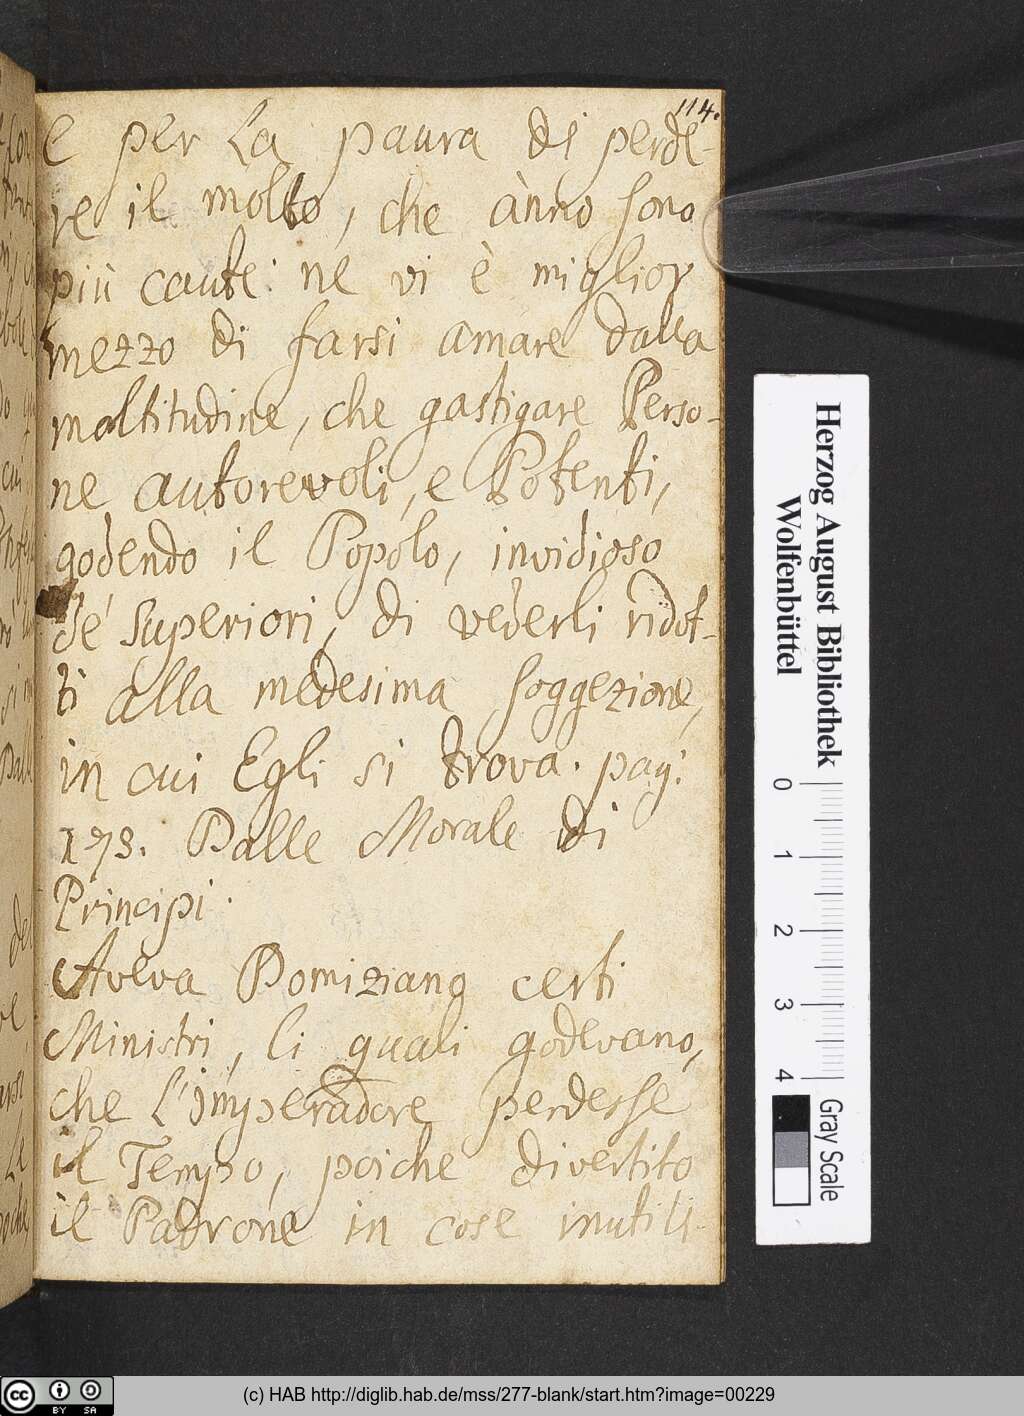 114.
e per la paura di perde-
re il molto, che ànno sono
più caute: ne vi è miglior
mezzo di farsi amare dalla
moltitudine, che gastigare Perso-
ne autorevoli, e Potenti,
godendo il Popolo, invidioso
de' Superiori, di vederli ridot-
ti alla medesima soggezione,
in cui Egli si trova. pag:
173. Dalle Morale di
Principi.
Aveva Domiziano certi
Ministri, li quali godevano,
che l'imperadore perdesse
il Tempo, poiche divertito
il Padrone in cose inutili-
Herzog August Bibliothek
Wolfenbüttel
0 1 2 3 4
Gray Scale
cc BY SA
(c) HAB http://diglib.hab.de/mss/277-blank/start.htm?image=00229